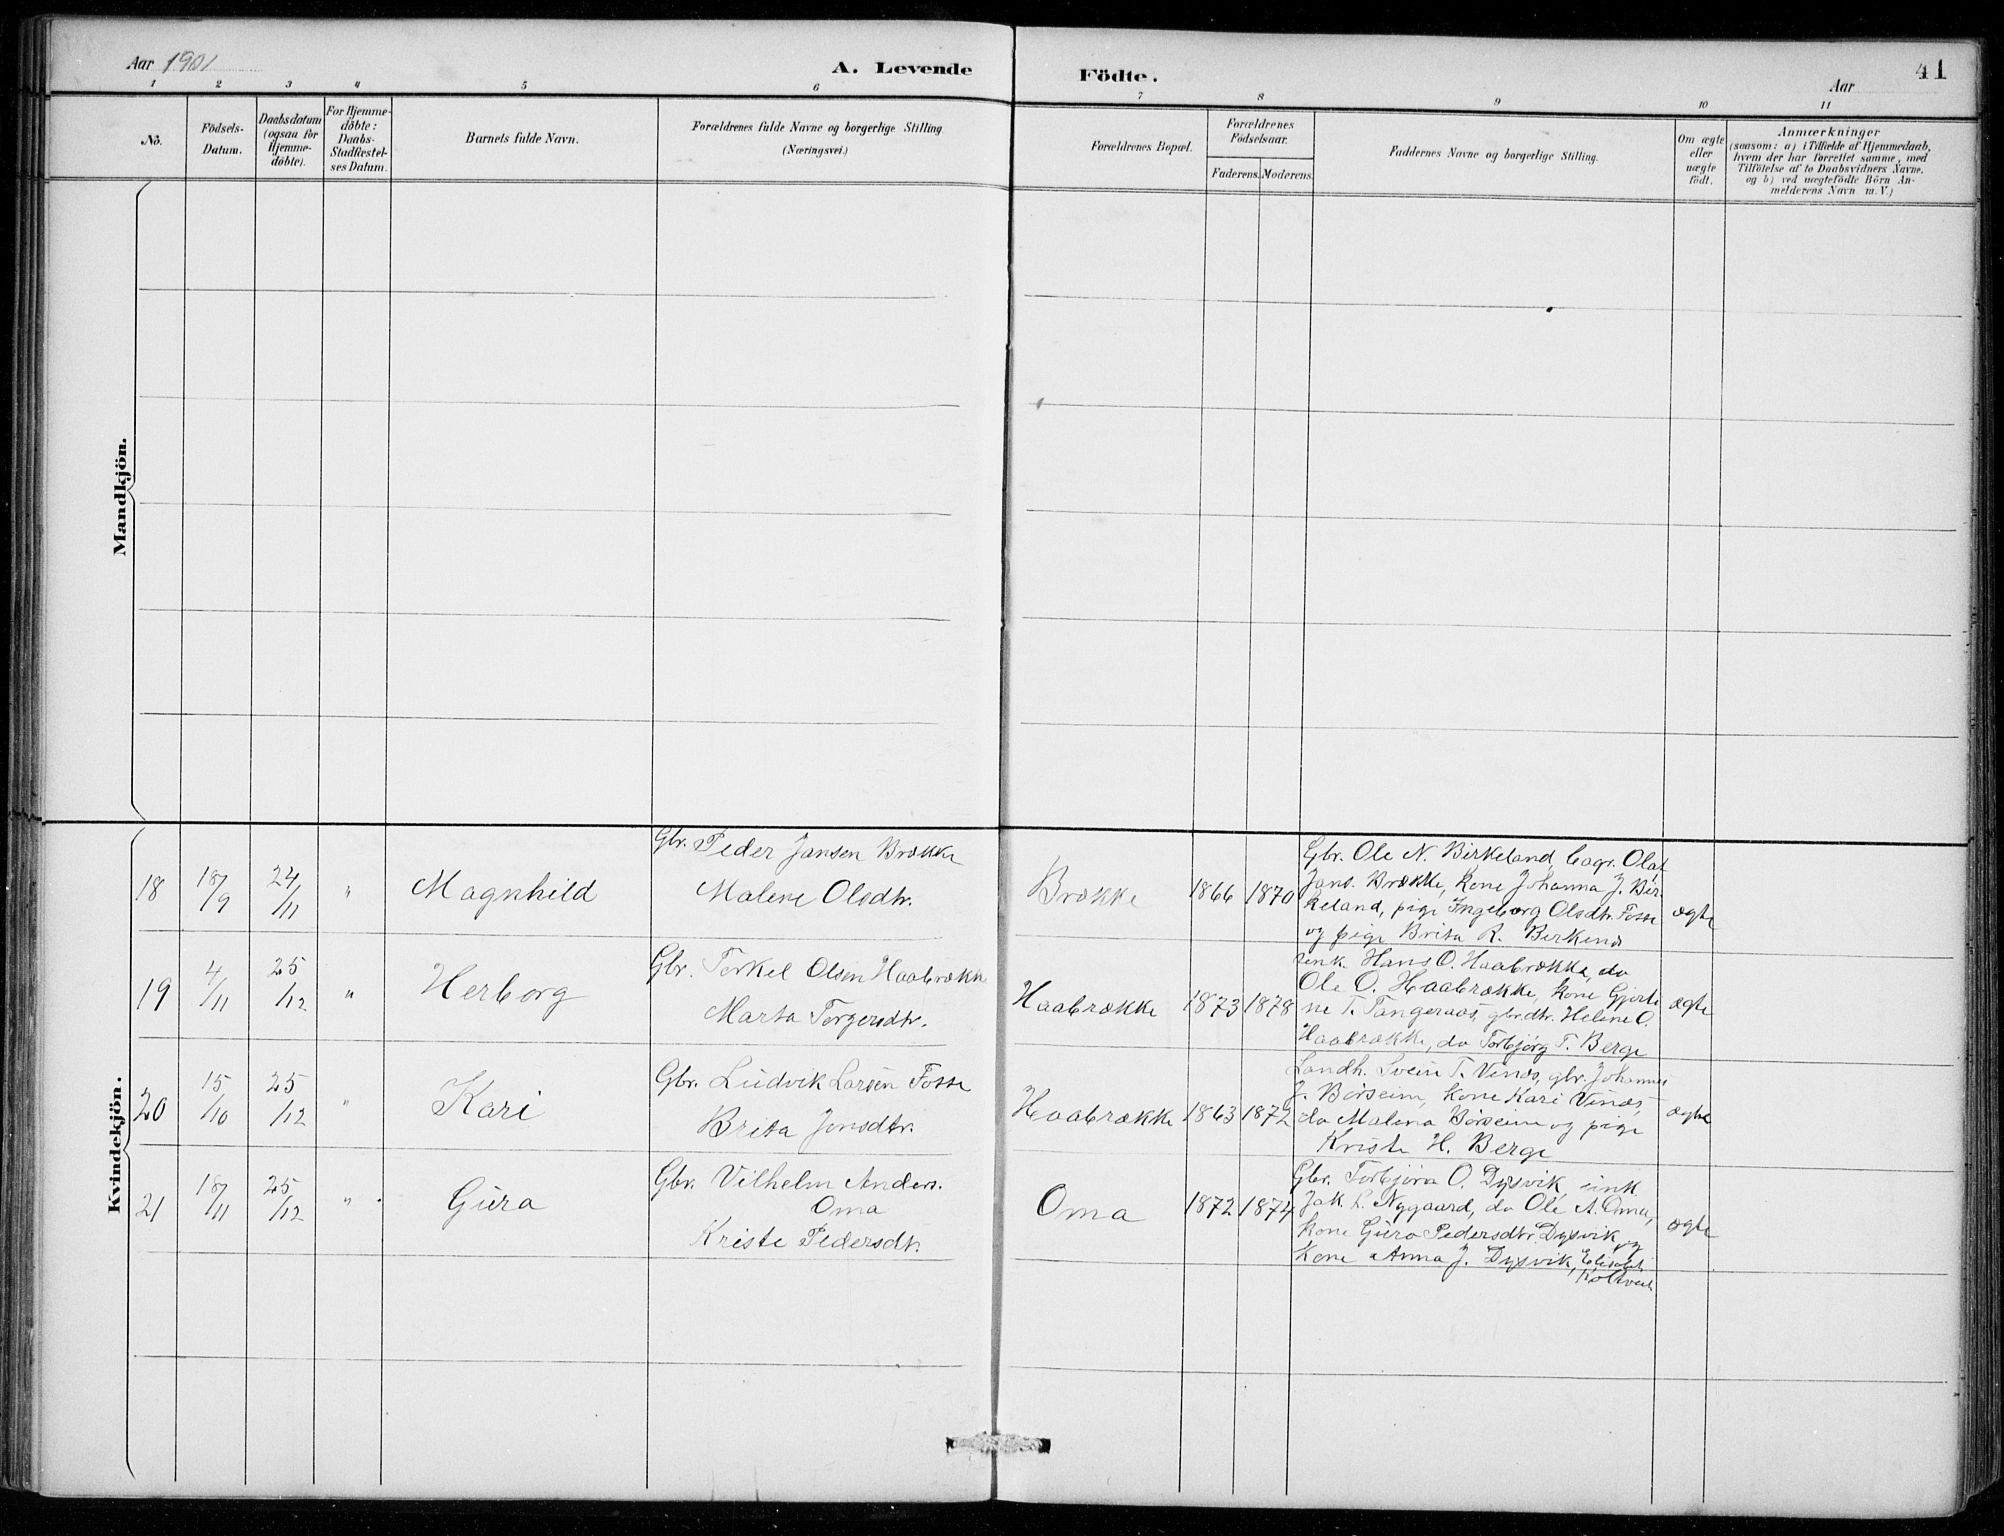 Aar 1901
A. Levende
Födte.
Aar
41
1 2 3 4 5 6 7 8 9 10 11
No.
Födsels-
Datum.
Daabsdatum
(ogsaa för
Hjemme-
döbte).
For Hjemme-
döbte:
Daabs-
Stadfæstel-
ses Datum.
Barnets fulde Navn.
Forældrenes fulde Navne og borgerlige Stilling
(Næringsvei.)
Forældrenes Bopæl.
Forældrenes
Födselsaar.
Faderens. Moderens.
Faddernes Navne og borgerlige Stilling.
Om ægte
eller
uægte
födt.
Anmærkninger
(saasom: a) i Tilfælde af Hjemmedaab,
hvem der har forrettet samme, med
Tilföielse af to Daabsvidners Navne.
og b) ved uægtefödte Börn An-
melderens Navn m. V.)
Mandkjön.
Kvindekjön.
18 18/9 24/11 " Magnhild
Gbr. Peder Jansen Brække
Malene Olsdtr.
Brække 1866 1870
Gbr. Ole N. Birkeland Olaf
Jans. Brække, Kone Johanna J. Bir-
keland, pige Ingeborg Olsdtr. Fosse
og pige Brita R.
ægte
19 4/11 25/12 " Herborg
Gbr. Terkel Olsen Haabrække
Marta Torgersdtr.
Haabrække 1873 1878
Unk. Hans O. Haabrække, do
Ole O. Haabrække, kone Gjerte
ne T. Tangeraas, gbrdtr. Helene O.
Haabrække, do Torbjørg T. Berge
ægte
20 15/10 25/12 " Kari
Gbr. Ludvik Larsen Fosse
Brita Jonsdtr.
Haabrække 1863 1872
Landh. Svein T. Vines, gbr. Johannes
J. Børseim, kone Kari Vines,
do Malena Børseim og pige
Kriste H. Berge
ægte
21 18/11 25/12 " Gura
Gbr. Vilhelm Anders.
Oma
Kriste Pedersdtr.
Oma 1872 1874
Gbr. Torbjørn O. Dysvik unk
Jak. L. Nygaard, do Ole A. Oma,
kone Guro Pedersdtr. Dysvik og
Kone Anna J. Dysvik,
ægte